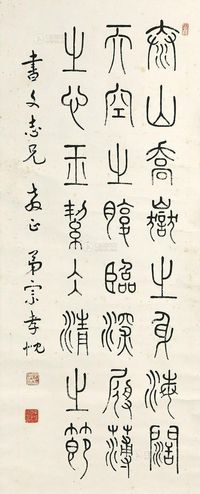 泰山喬嶽之身海闊
天空之腹臨深履薄
之心玉絜冰清之節
書文志兄 教正 弟宗孝忱